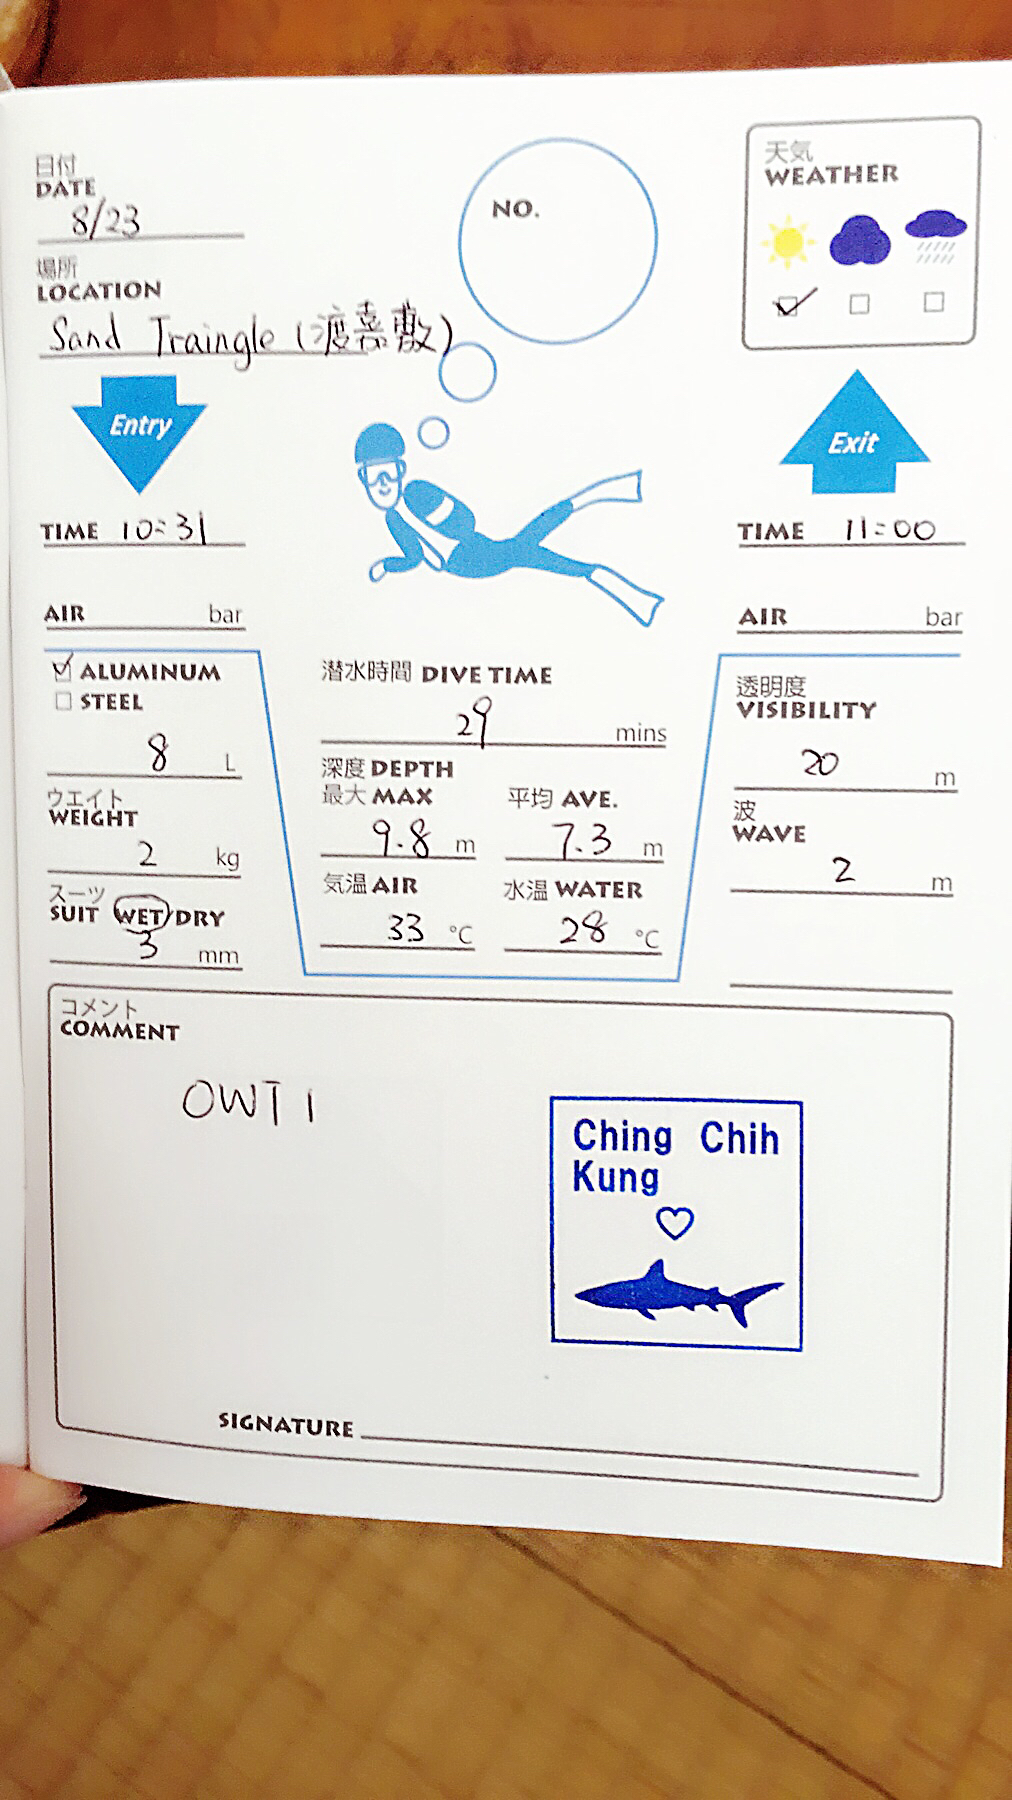 日付
DATE
8/23
場所
LOCATION
Sand Traingle (渡嘉敷)
NO.
天気
WEATHER
Entry
Exit
TIME 10:31
TIME 11:00
AIR bar
AIR bar
ALUMINUM
STEEL
8 L
ウエイト
WEIGHT
2 kg
スーツ
SUIT WET/DRY
3 mm
潜水時間 DIVE TIME
29 mins
深度 DEPTH
最大 MAX
9.8 m
平均 AVE.
7.3 m
気温 AIR
33 °C
水温 WATER
28 °C
透明度
VISIBILITY
20 m
波
WAVE
2 m
コメント
COMMENT
OWT 1
Ching Chih
Kung
SIGNATURE